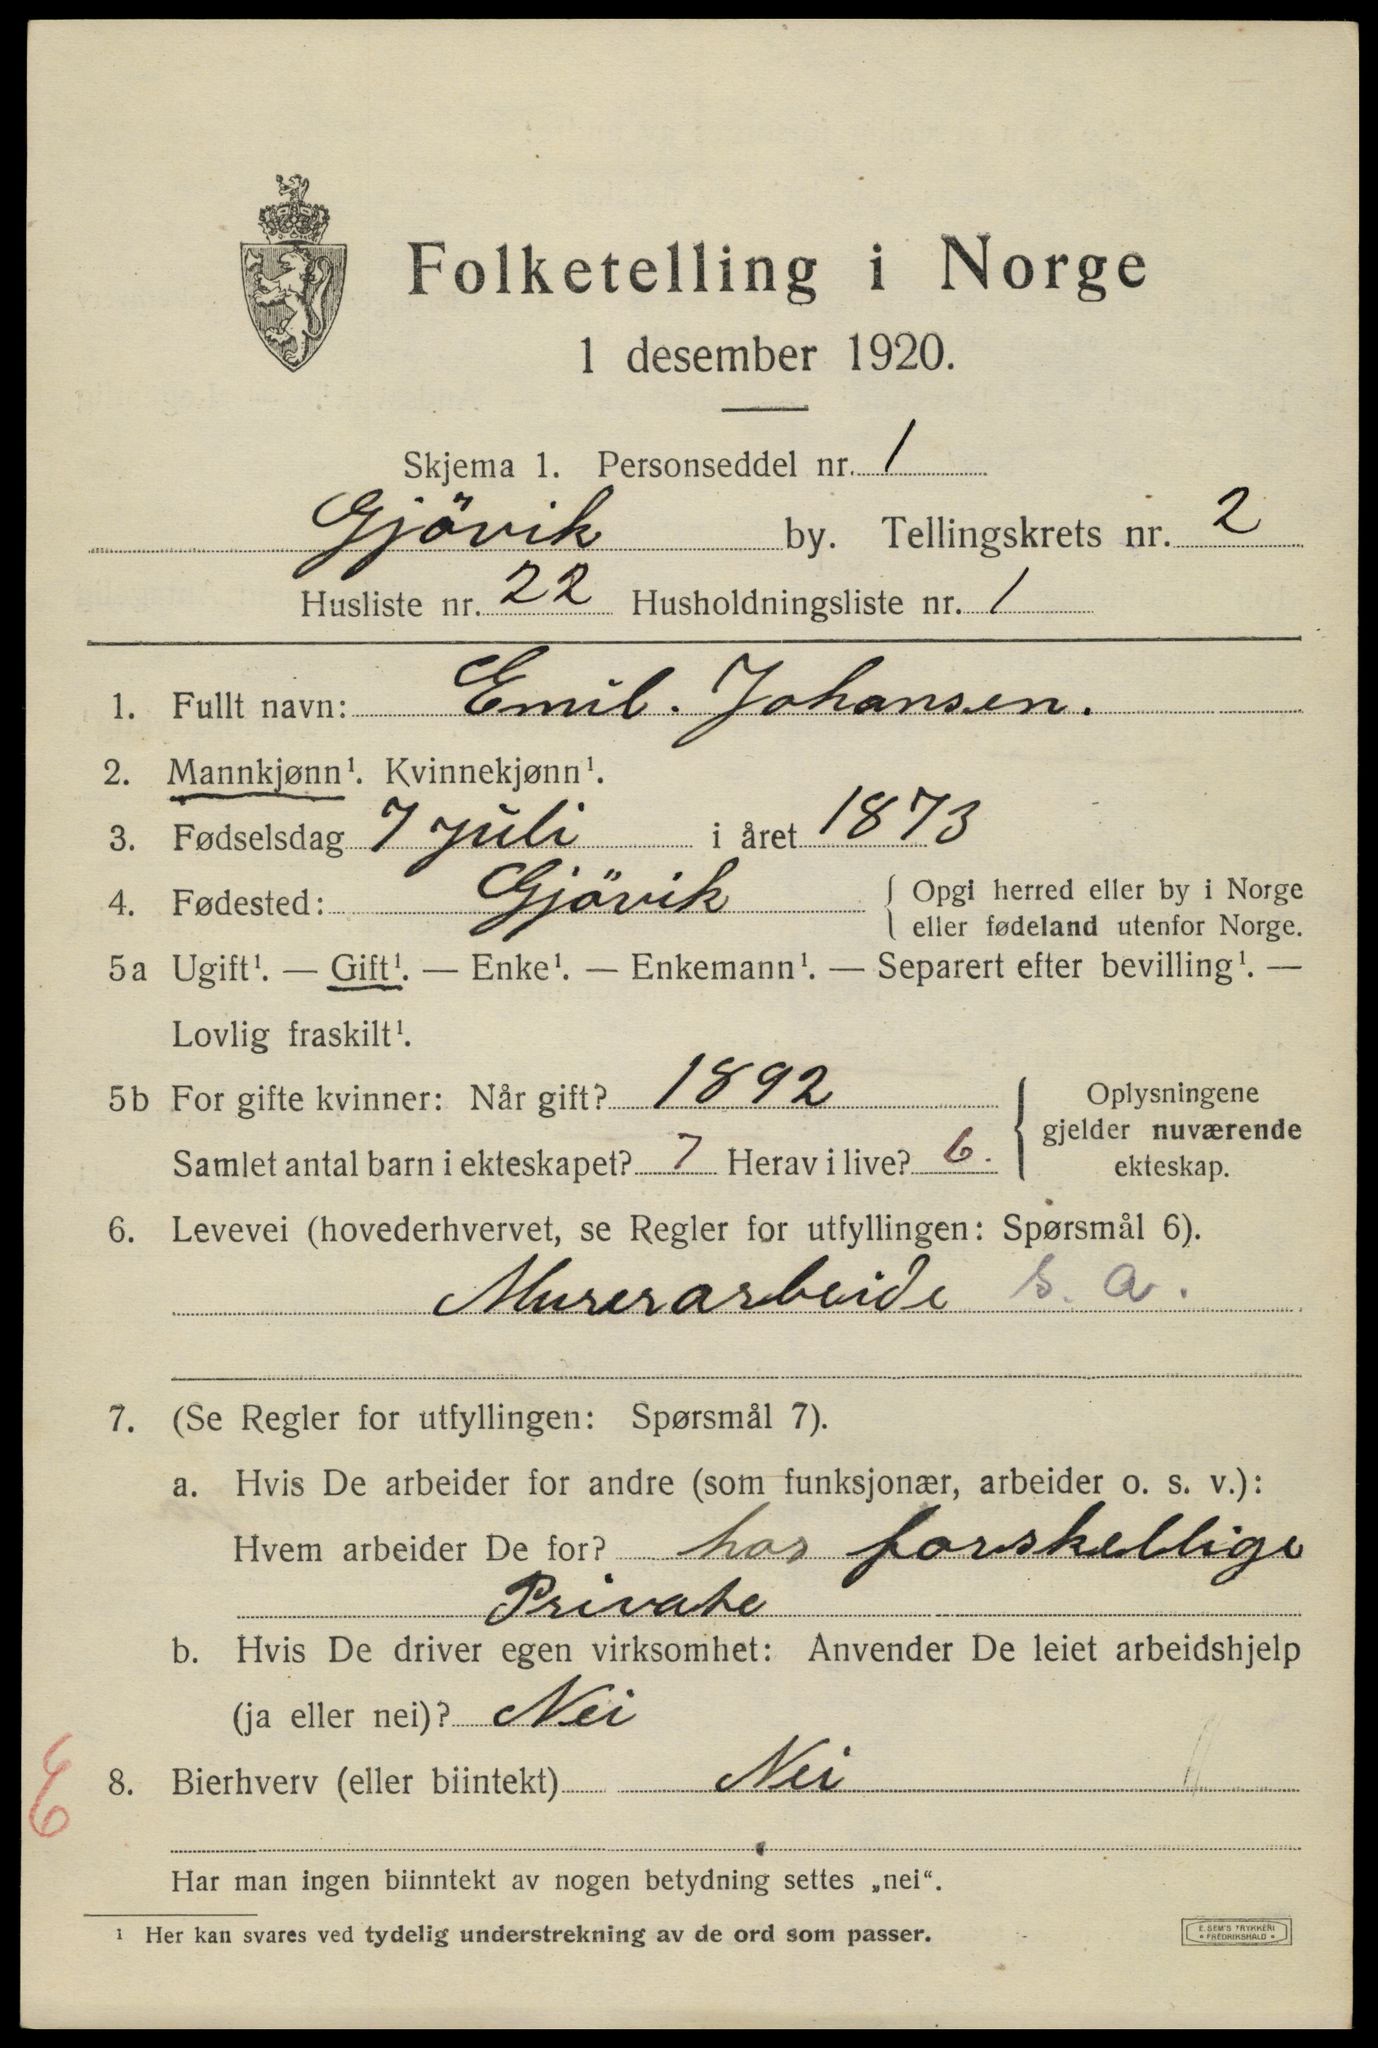 Folketelling i Norge
1 desember 1920.
Skjema 1. Personseddel nr. 1
Gjövik by. Tellingskrets nr. 2
Husliste nr. 22 Husholdningsliste nr. 1
1. Fullt navn: Emil. Johansen.
2. Mannkjønn¹. Kvinnekjønn¹.
3. Fødselsdag 7 juli i året 1873
4. Fødested: Gjövik { Opgi herred eller by i Norge
eller fødeland utenfor Norge.
5a Ugift¹. — Gift¹. — Enke¹. — Enkemann¹. — Separert efter bevilling¹. —
Lovlig fraskilt¹.
5b For gifte kvinner: Når gift? 1892
Samlet antal barn i ekteskapet? 7 Herav i live? 6.
Oplysningene
gjelder nuværende
ekteskap.
6. Levevei (hovederhvervet, se Regler for utfyllingen: Spørsmål 6).
Murerarbeide s. a.
7. (Se Regler for utfyllingen: Spørsmål 7).
a. Hvis De arbeider for andre (som funksjonær, arbeider o. s. v.):
Hvem arbeider De for? hos forskellige
Private
b. Hvis De driver egen virksomhet: Anvender De leiet arbeidshjelp
(ja eller nei)? Nei
E
8. Bierhverv (eller biintekt) Nei
Har man ingen biinntekt av nogen betydning settes „nei“.
¹ Her kan svares ved tydelig understrekning av de ord som passer.
E. SEM'S TRYKKERI
* FREDRIKSHALD *